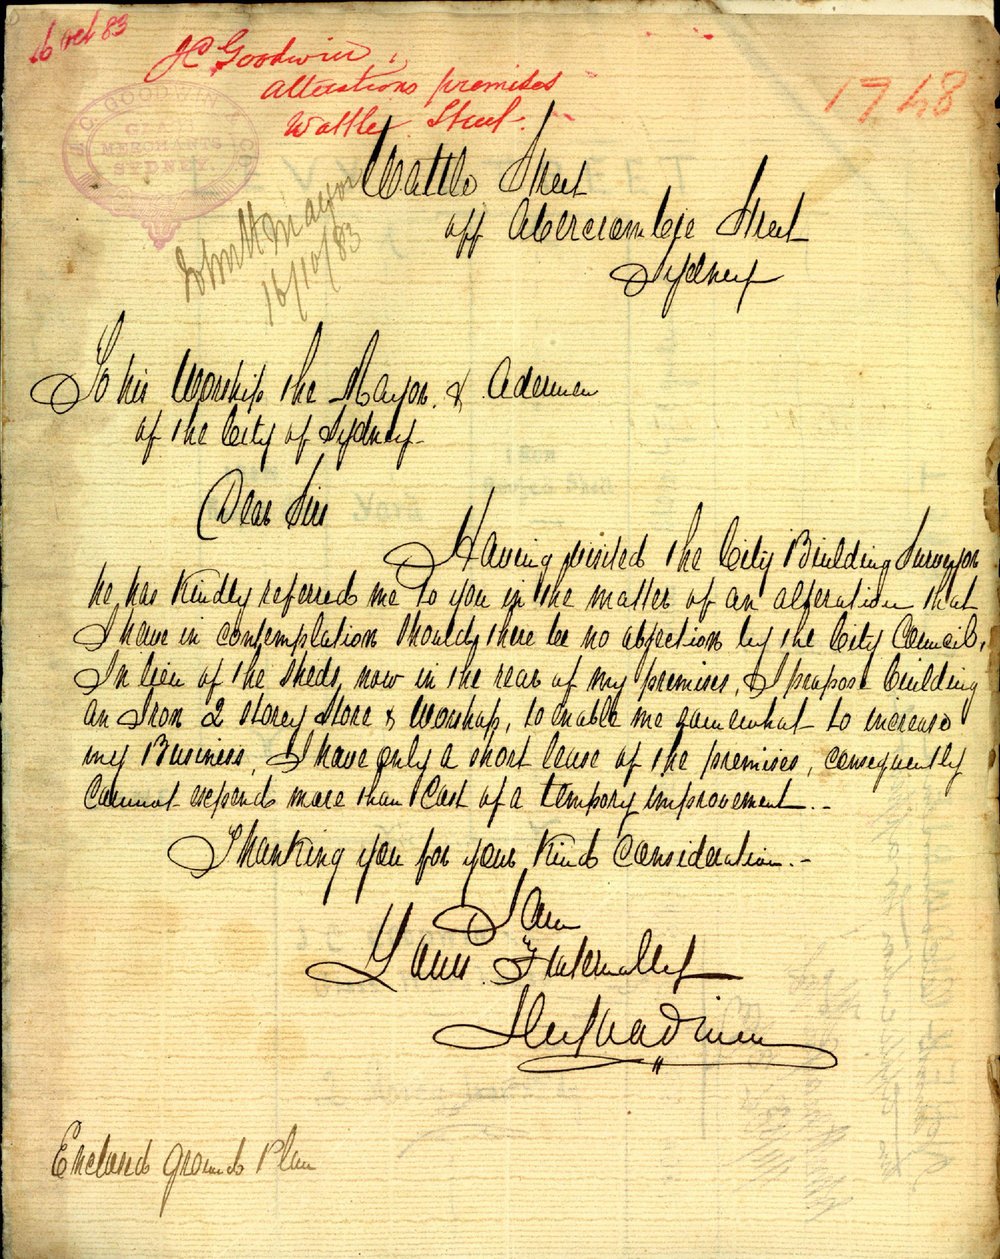 16 Oct 83
JC Goodwin,
alterations premises
Wattle Street.
1748
J. C. GOODWIN & CO
MERCHANTS
SYDNEY
Wattle Street
off Abercrombie Street
Sydney
Mayor
16/10/83
To his Worship the Mayor & Adermen
of the City of Sydney
Dear Sirs
Having visited the City Building Surveyor
he has kindly referred me to you in the matter of an alteration that
I have in contemplation should there be no objection by the City Council.
In lieu of the sheds, now in the rear of my premises, I propose building
an Iron 2 storey Store & Worshop, to enable me somewhat to increase
my Business, I have only a short lease of the premises, consequently
cannot expend more than cost of a tempory improvement.-
Thanking you for your kind consideration.-
I am
Yours Fraternally
JC Goodwin
Enclosed ground Plan